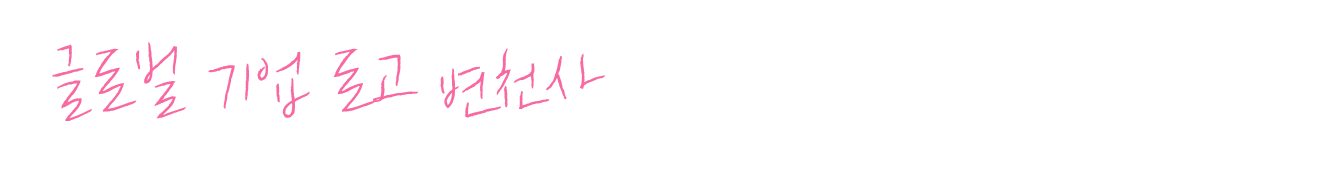 글로벌 기업 로고 변천사